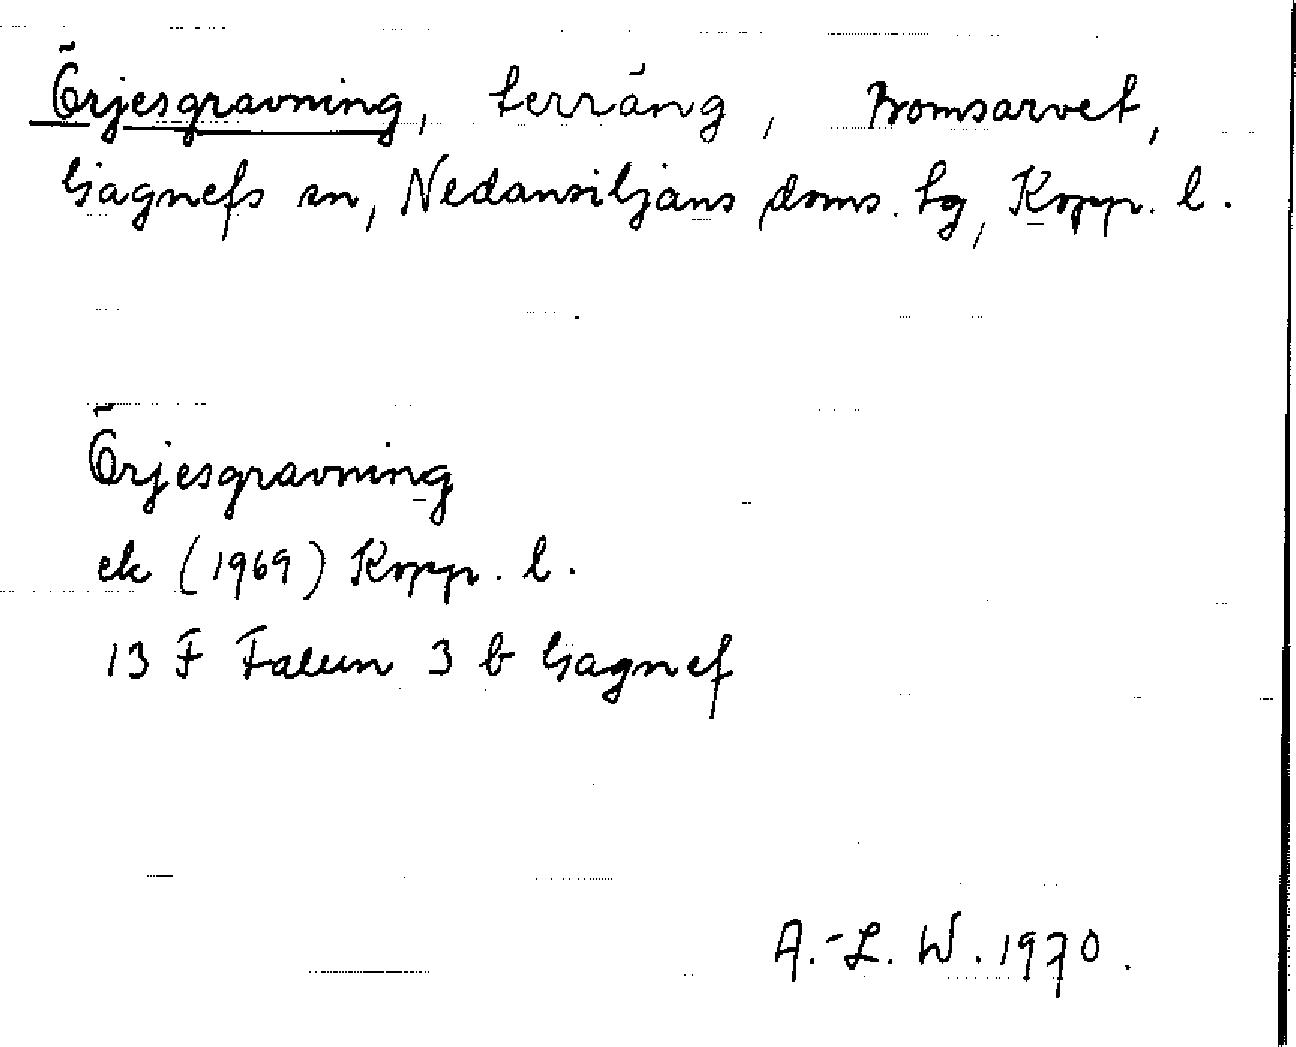 Örjesgravning, terräng, Bomsarvet,
Gagnefs sn, Nedansiljans doms. tg, Kopp. l.
Örjesgravning
ek (1969) Kopp. l.
13 F Falun 3 b Gagnef
A.-L. W. 1970.